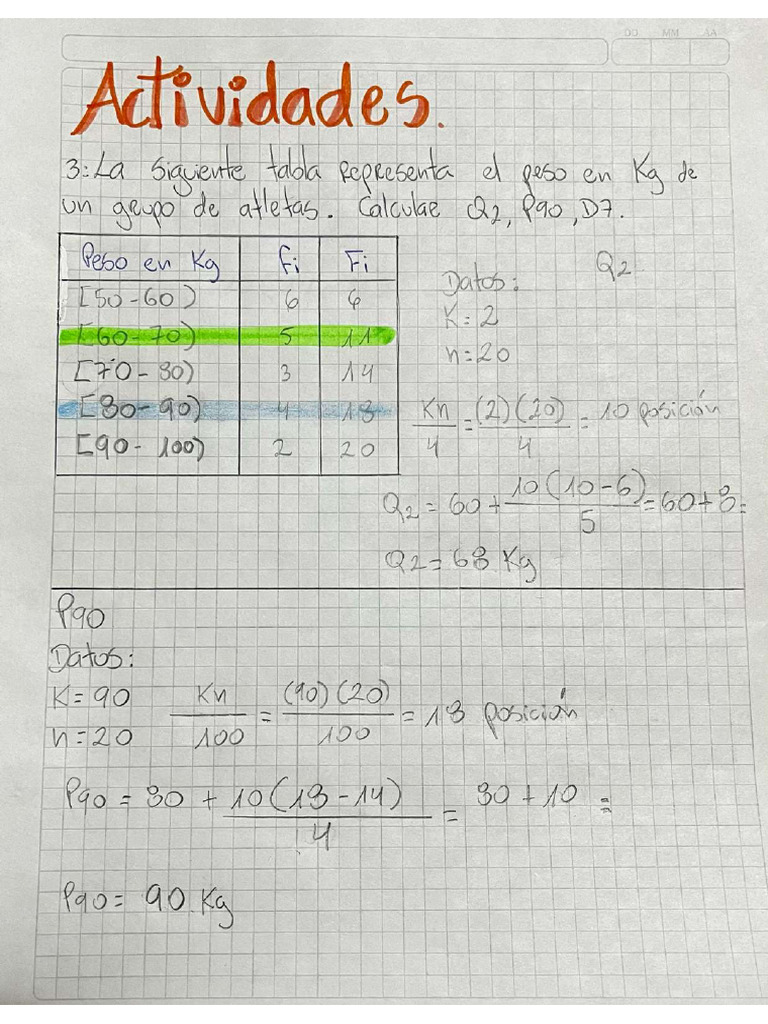 DD MM AA
Actividades.
3: La siguiente tabla representa el peso en Kg de
un grupo de atletas. Calcular Q2, P90, D7.
Peso en Kg fi Fi
[50-60) 6 6
[60-70) 5 11
[70-80) 3 14
[80-90) 4 18
[90-100) 2 20
Q2
Datos:
K=2
n=20
Kn/4 = (2)(20)/4 = 10 posición
Q2 = 60 + 10(10-6)/5 = 60+8=
Q2 = 68 Kg
P90
Datos:
K=90
n=20
Kn/100 = (90)(20)/100 = 18 posición
P90 = 80 + 10(18-14)/4 = 80+10 =
P90 = 90 Kg